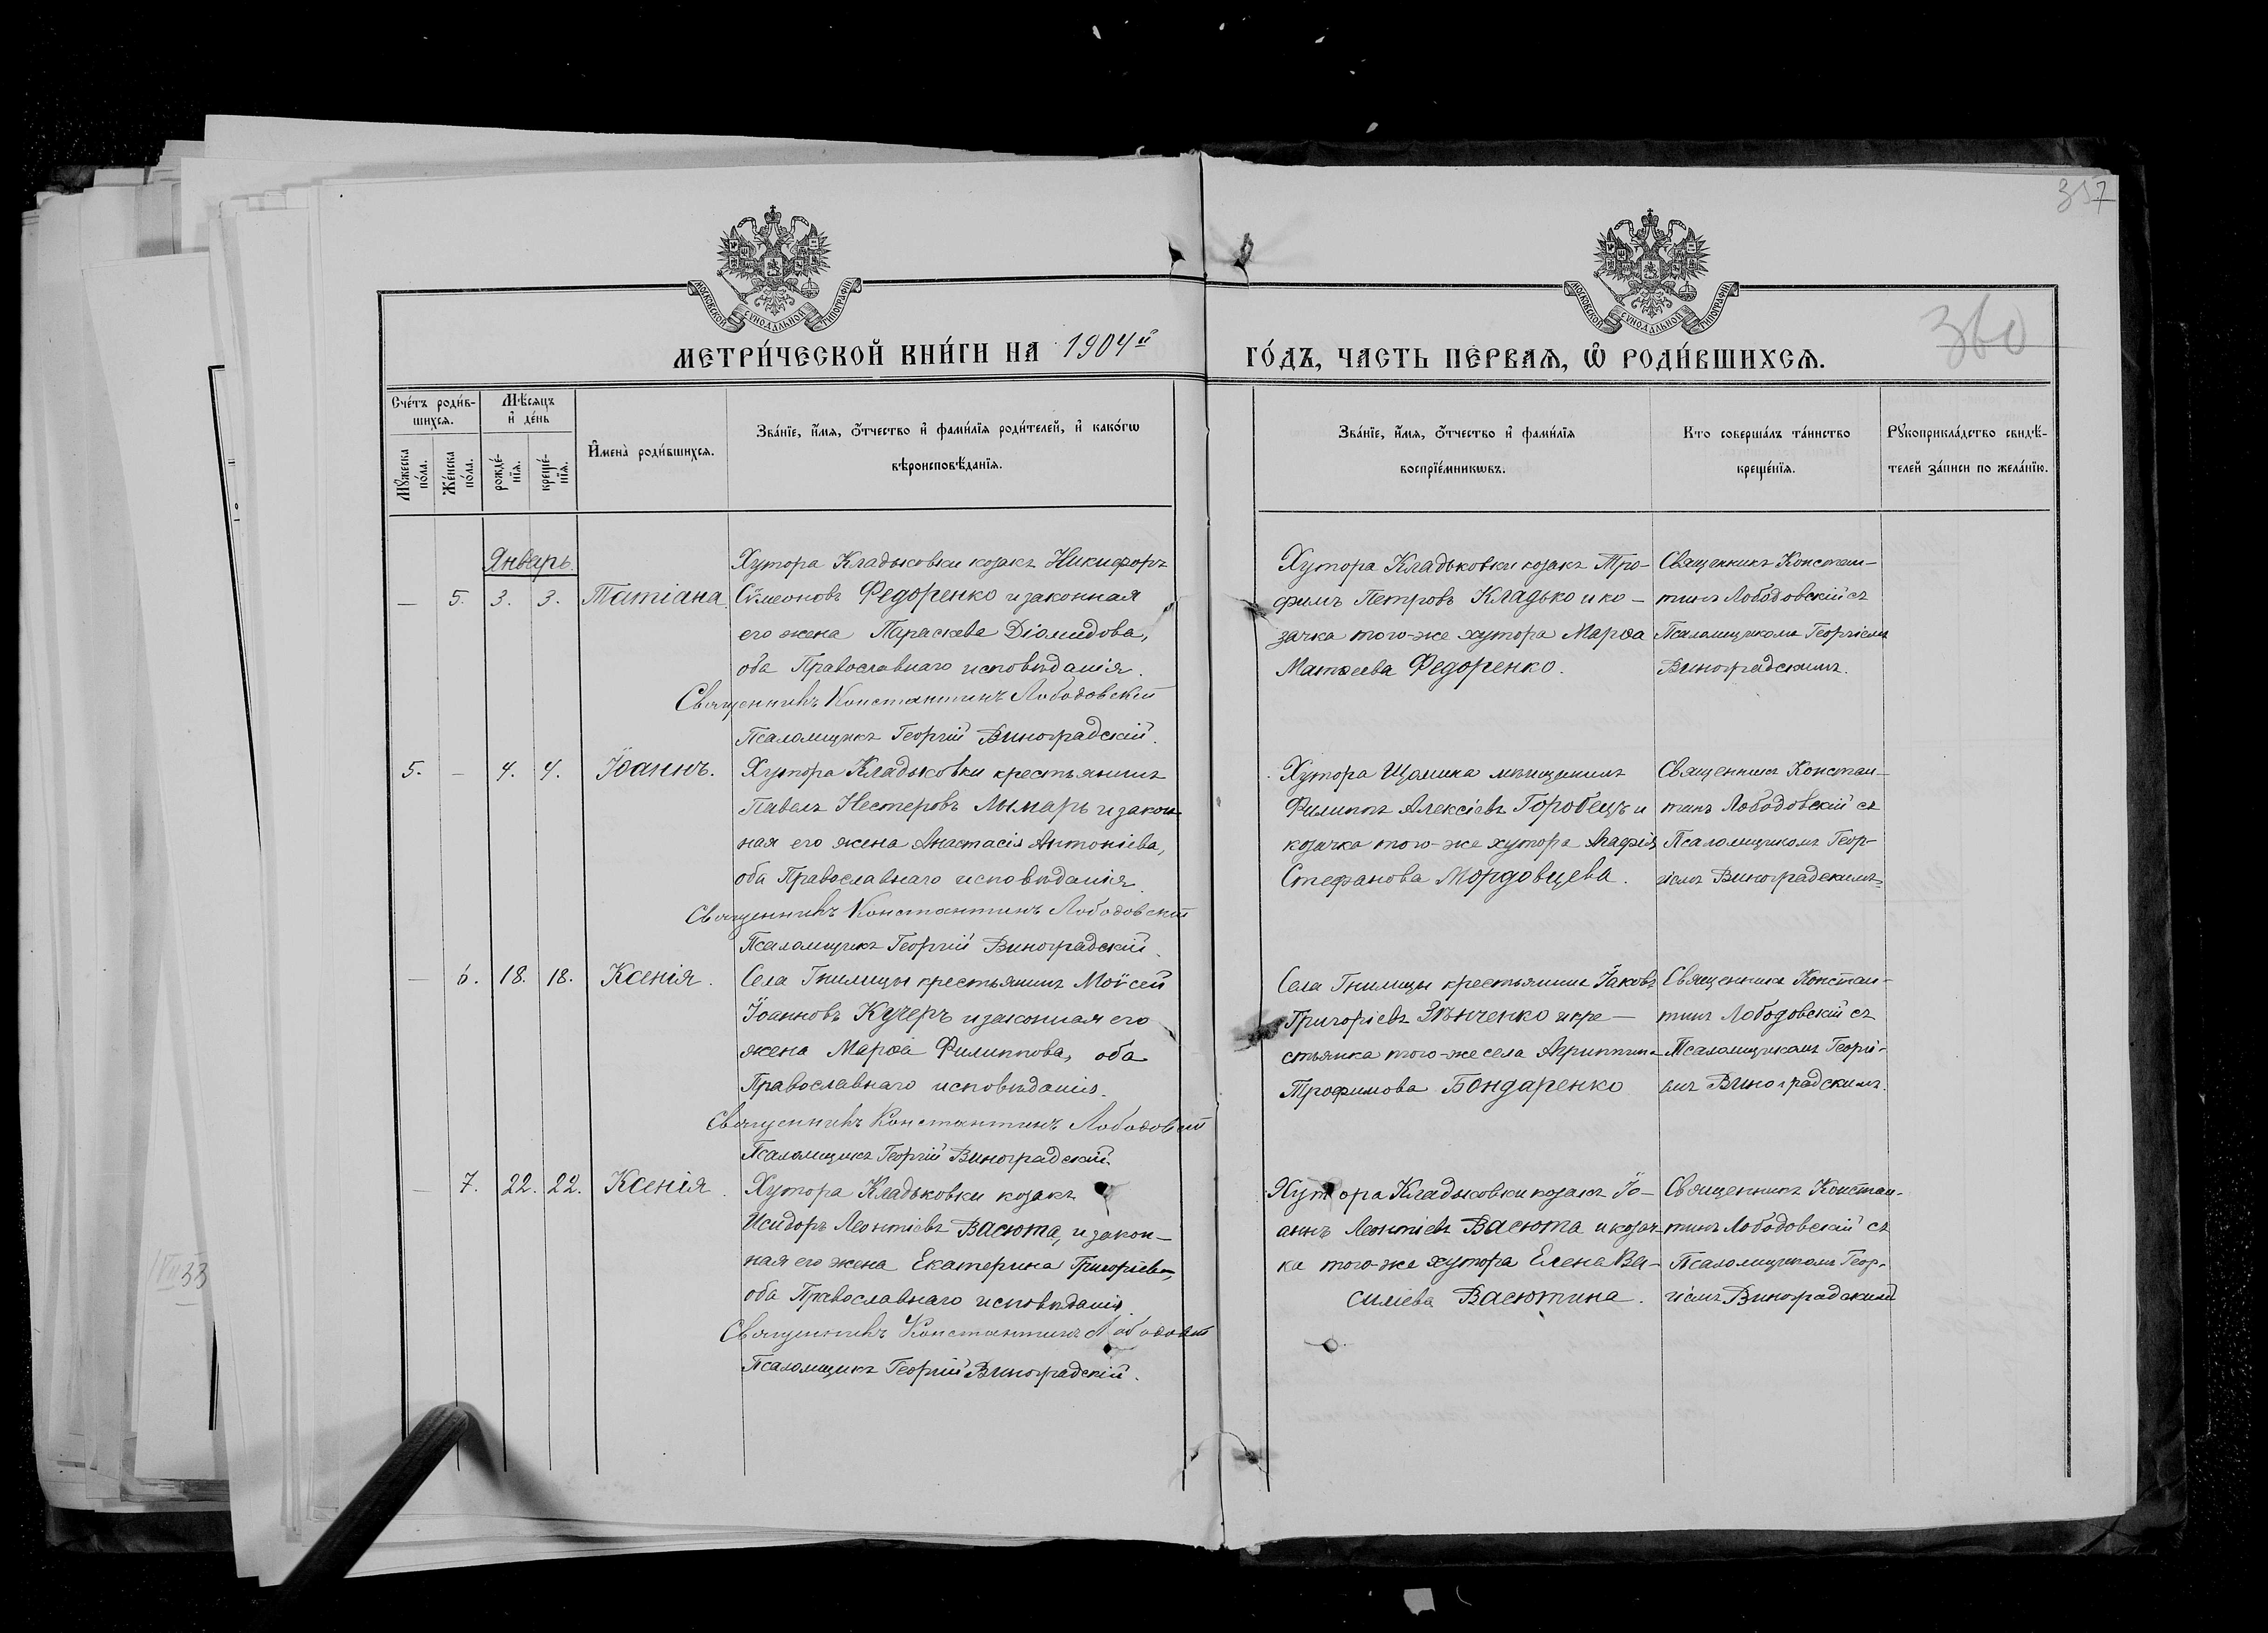 357
МОСКОВСКОЙ СѴНОДАЛЬНОЙ ТИПОГРАФІИ
МОСКОВСКОЙ СѴНОДАЛЬНОЙ ТИПОГРАФІИ
МЕТРИ́ЧЕСКОЙ КНИ́ГИ НА 1904й
ГО́ДЪ, ЧАСТЬ ПЕ́РВАѦ, Ѡ҆ РОДИ́ВШИХСѦ.
360
Сче́тъ роди́в-
шихсѧ.
Мѣ́сѧцъ
и҆ де́нь
Мꙋ́жеска
по́ла.
Же́нска
по́ла.
рожде́-
нїѧ.
креще́-
нїѧ.
И҆мена̀ роди́вшихсѧ.
Зва́нїе, и҆́мѧ, ѻ҆́тчество и҆ фами́лїѧ роди́телей, и҆ како́гѡ
вѣроисповѣ́данїѧ.
Зва́нїе, и҆́мѧ, ѻ҆́тчество и҆ фами́лїѧ
воспрїе́мникѡвъ.
Кто соверша́лъ та́инство
креще́нїѧ.
Рꙋкоприкла́дство свидѣ́-
телей за́писи по жела́нїю.
Январь.
— 5. 3. 3. Татіана.
Хутора Кладьковки козакъ Никифоръ
Сѵмеоновъ Федоренко и законная
его жена Параскева Діомидова,
оба Православнаго исповѣданія.
Священникъ Константинъ Лободовскій
Псаломщикъ Георгій Виноградскій.
Хутора Кладьковки козакъ Тро-
фимъ Петровъ Кладько и ко-
зачка того-же хутора Марѳа
Матѳеева Федоренко.
Священникъ Констан-
тинъ Лободовскій съ
Псаломщикомъ Георгіемъ
Виноградскимъ.
5. — 4. 4. Іоаннъ.
Хутора Кладьковки крестьянинъ
Павелъ Нестеровъ Лымарь и закон-
ная его жена Анастасія Антоніева,
оба Православнаго исповѣданія.
Священникъ Константинъ Лободовскій
Псаломщикъ Георгій Виноградскій.
Хутора Щомика мѣщанинъ
Филиппъ Алексіевъ Горобецъ и
козачка того-же хутора Агафія
Стефанова Мордовцева.
Священникъ Констан-
тинъ Лободовскій съ
Псаломщикомъ Геор-
гіемъ Виноградскимъ.
— 6. 18. 18. Ксенія.
Села Гнилицы крестьянинъ Моѵсей
Іоанновъ Кучеръ и законная его
жена Марѳа Филиппова, оба
Православнаго исповѣданія.
Священникъ Константинъ Лободовскій
Псаломщикъ Георгій Виноградскій.
Села Гнилицы крестьянинъ Іаковъ
Григоріевъ Зѣнченко и кре-
стьянка того-же села Агриппина
Трофимова Бондаренко
Священникъ Констан-
тинъ Лободовскій съ
Псаломщикомъ Георгі-
емъ Виноградскимъ.
— 7. 22. 22. Ксенія.
Хутора Кладьковки козакъ
Исидоръ Леонтіевъ Васюта, и закон-
ная его жена Екатерина Григоріева,
оба Православнаго исповѣданія.
Священникъ Константинъ Лободовскій
Псаломщикъ Георгій Виноградскій.
Хутора Кладьковки козакъ Іо-
аннъ Леонтіевъ Васюта и козач-
ка того-же хутора Елена Ва-
силіева Васютина.
Священникъ Констан-
тинъ Лободовскій съ
Псаломщикомъ Геор-
гіемъ Виноградскимъ